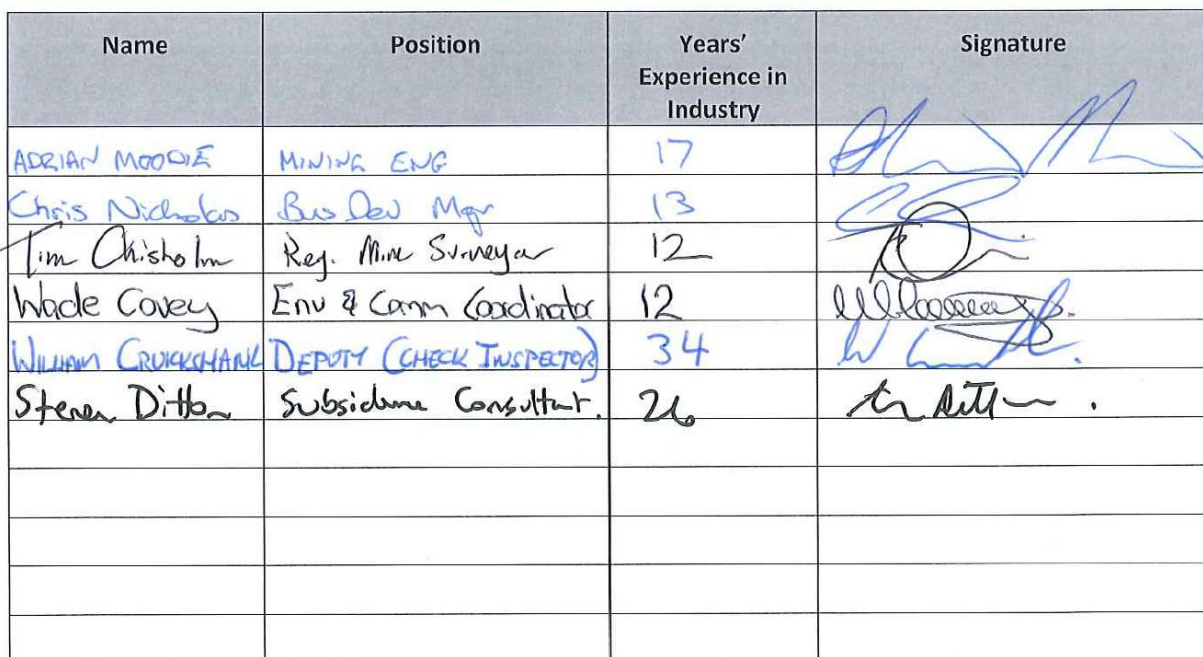 Name Position Years' Experience in Industry Signature
ADRIAN MOODIE MINING ENG 17
Chris Nicholas Bus Dev Mgr 13
Tim Chisholm Reg. Mine Surveyor 12
Wade Covey Env & Comm Coordinator 12
WILLIAM CRUICKSHANK DEPUTY (CHECK INSPECTOR) 34
Steven Ditton Subsidence Consultant. 26